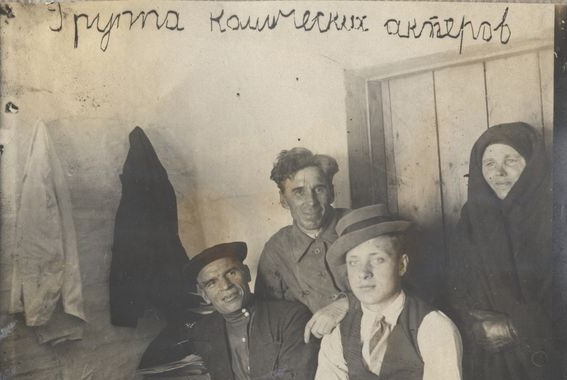 Группа комических актеров